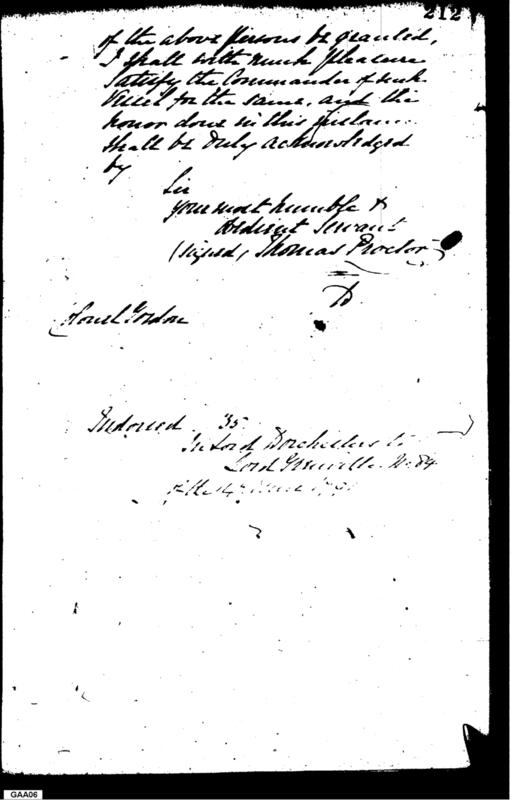 212
of the above Persons be granted,
I shall with much pleasure
Satisfy the Commander of such
Vessel for the same, and the
honor done in this
shall be duly acknowledged
by
Sir
your most humble &
Obedient Servant
(signed, Thomas Proctor)
To
Colonel Gordon
Indorsed 35
In Lord Dorchesters to
Lord Grenville No. 84
of the
GAA06